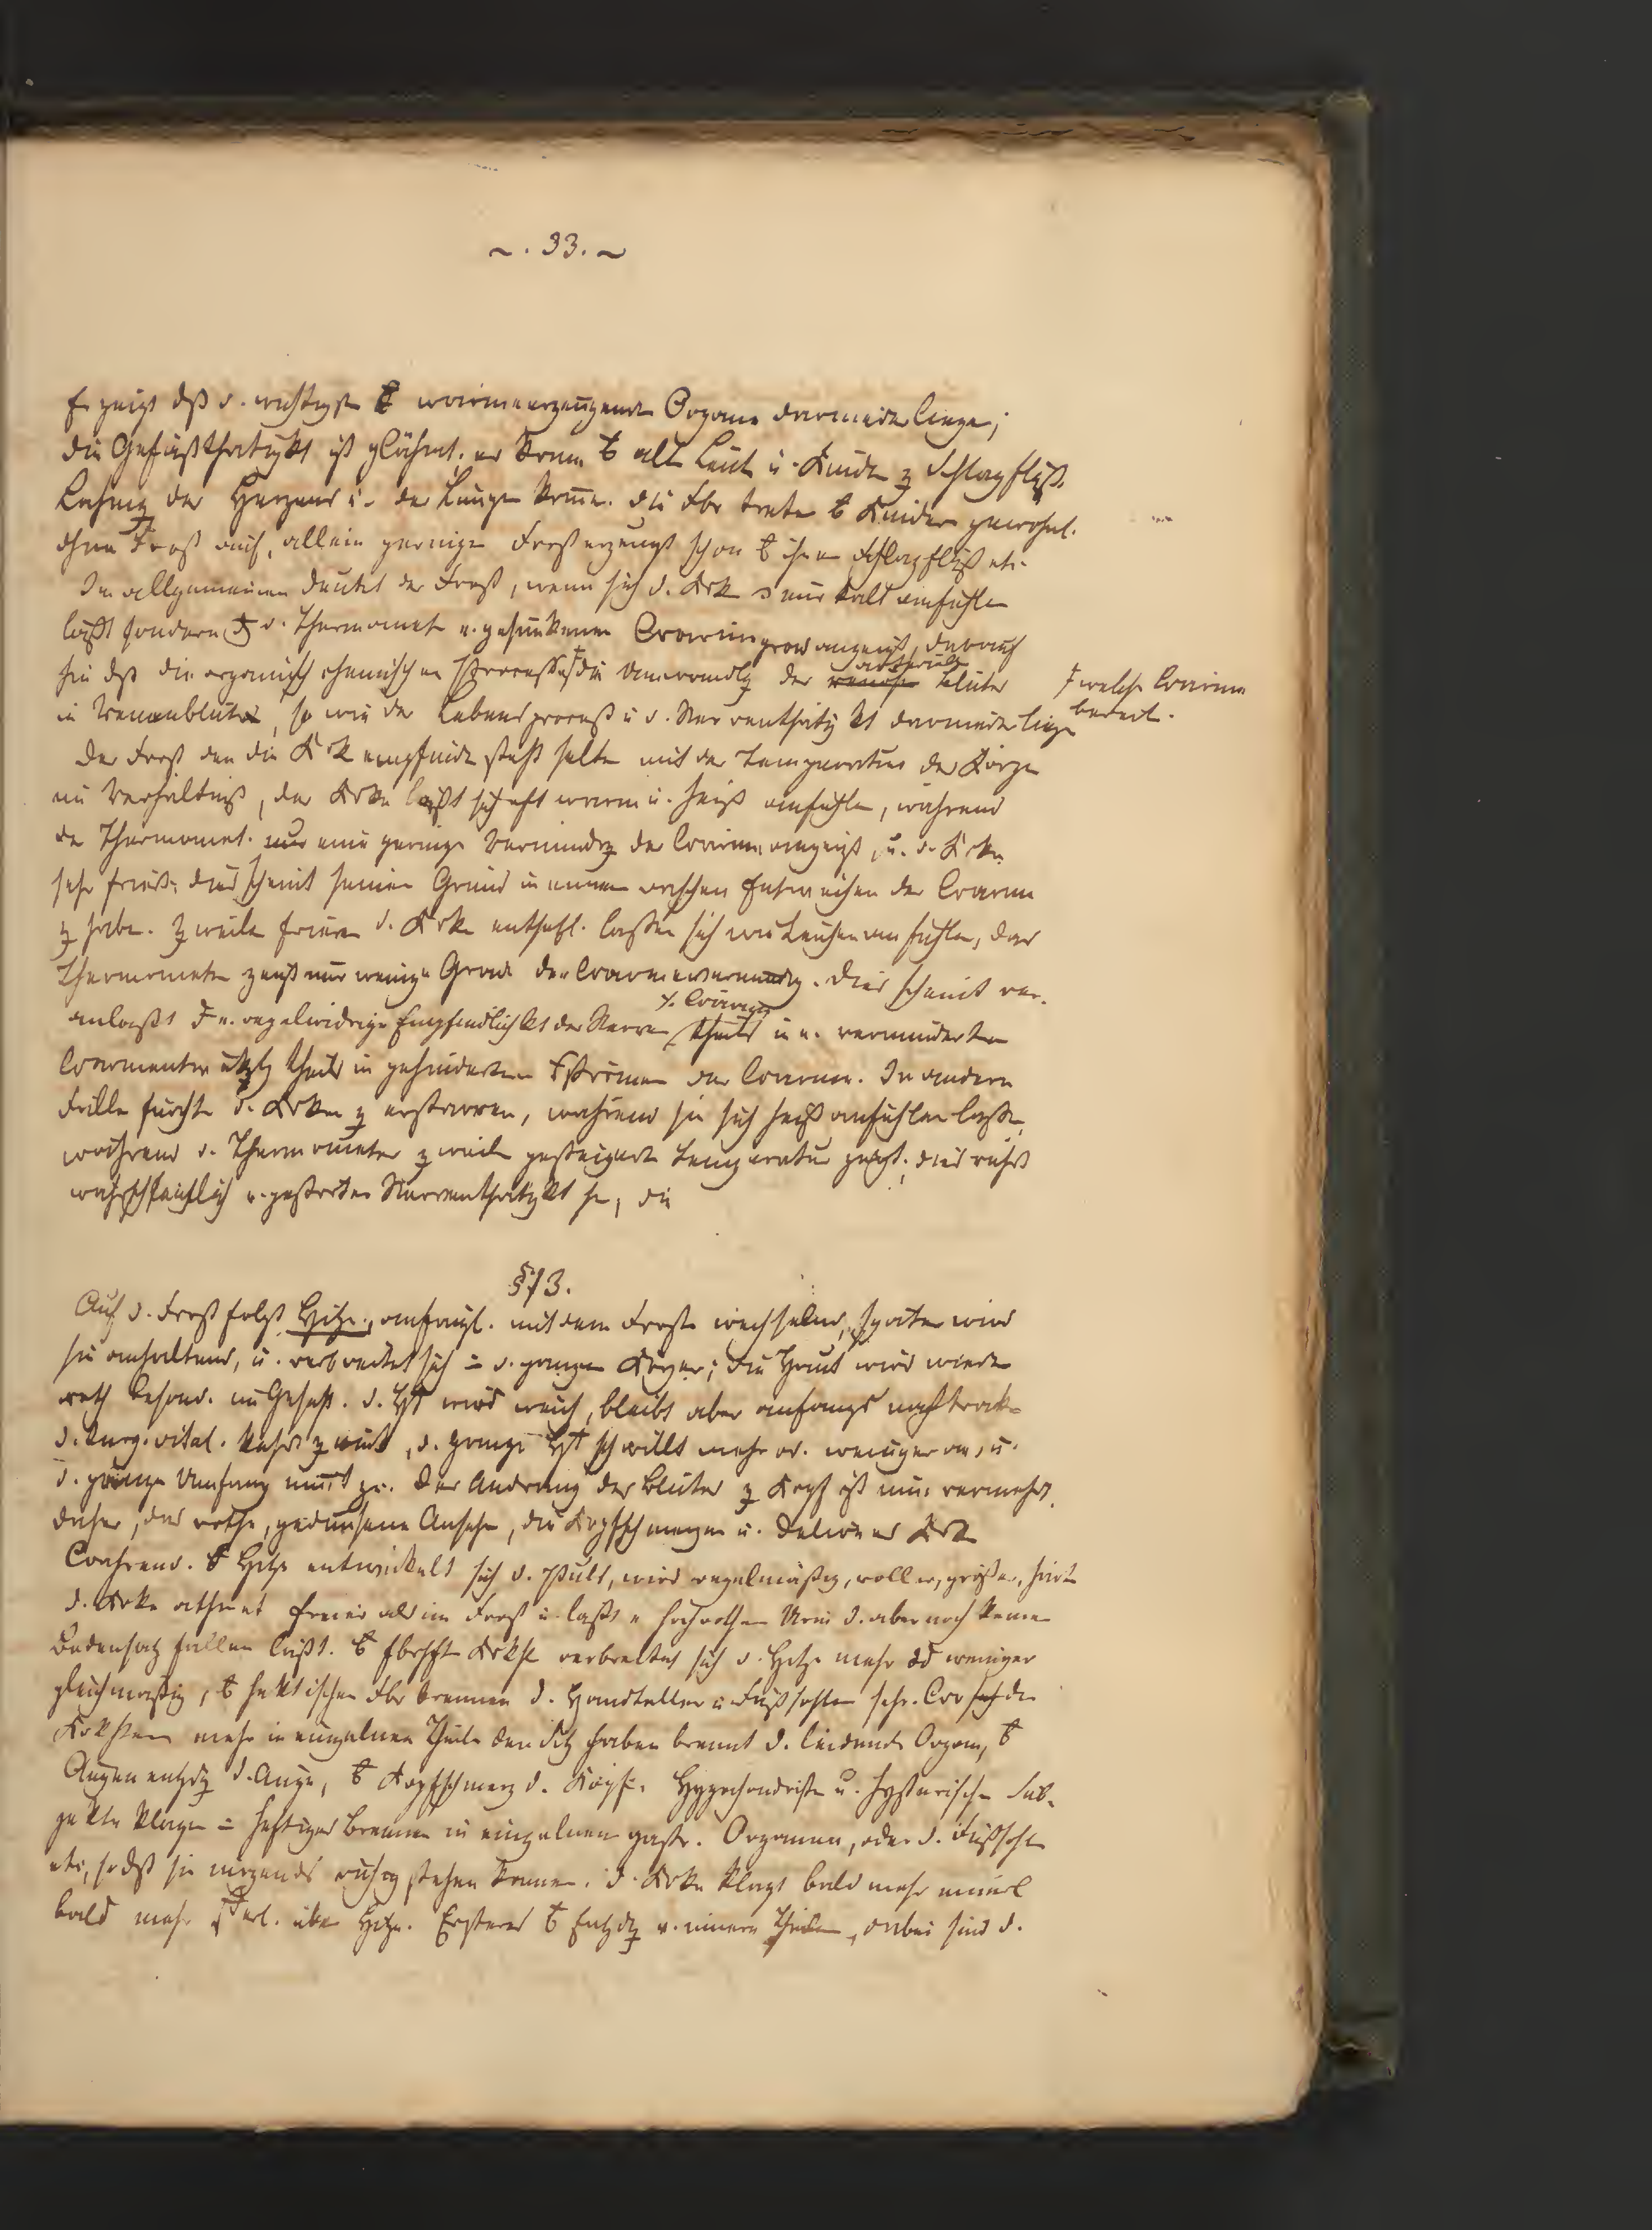 ~. 33. ~
Er zeigt dß d. wichtigste wärmeerzeugende Organe darnieder liegen;
die Gefäßthätigkt ist gelähmt. er kann alte Leute u. Kinder z Schlagfluß,
Lähmg des Herzens u. der Lunge komn. die Fbr treten Kinder gewöhnl.
ohne Frost auf, allein geringer Frost erzeugt schon ihnen Schlagfluß etc.
Im allgemeinen deutet der Frost, wenn sich d. Krk nur kalt anfühlen
läßt sondern d. Thermomet e. gesunkenen Wärmegrad anzeigt, darauf
hin dß die organisch chemischen Processe, die Umwandlg des arteriell Blutes
‡ welche Wärme
bereit.
in Venenblut, so wie der Lebensproceß u d. Nerventhätigkt darnieder liege
Der Frost den die Krk empfinde steht selten mit der Temperatur des Körpers
im Verhältniß, der Krke läßt sich oft warm u. heiß anfühlen, während
der Thermomet. nur eine geringe Vermindrg der Wärme anzeigt, u. d. Krke
sehr friert; dies scheint seinen Grund in einem raschen Entweichen der Wärme
z haben. Zweilen frieren d. Krke entsetzl. lassen sich wie Leichen anfühlen, das
Thermometer zeigt nur wenige Grade der Wärmevermindrg. Dies scheint ver-
anlaßt e. regelwidrige Empfindlichkt der Nerven z. Wärme theils in e. verminderten
Wärmeentwicklg theils in gehinderten Strömen der Wärme. In andern
Fällen fürchte d. Krken z erstarren, während sie sich heiß anfühlen lassen,
während d. Thermometer zweilen gesteigerte Temperatur zeigt; dies rührt
wahrscheinlich v. gestörter Nerventhätigkt her, die
§73.
Auf d. Frost folgt Hitze, anfangl. mit dem Froste wechselnd, später wird
sie anhaltend, u. verbreitet sich d. ganzen Körper; die Haut wird wieder
roth besond. im Gesicht. d. Ht wird weich, bleibt aber anfangs noch trocken
d. Turg. vital. kehrt zurück, d. ganze Ht schwillt mehr od. weniger an, u.
d. ganze Umfang nimt zu. Der Andrang des Blutes z Kopf ist nun vermehrt,
daher, das rothe, gedunsene Ansehen, die Kopfschmerzen u. Delirien des Krk
Während. Hitze entwickelt sich d. Puls, wird regelmäßig, voller, größer, härter
d. Krke athmet freier als im Frost u. läßt e hochrothen Urin d. aber noch keinen
Bodensatz fallen läßt. fbrhft Krkht verbreitet sich d. Hitze mehr od weniger
gleichmäßig, hektischen Fbr brennen d. Handteller u Fußsohlen sehr. Wo sich die
Krkhten mehr in einzelnen Theilen den Sitz haben brennt d. leidende Organ,
Augenentzdg d. Auge, Kopfschmerz d. Kopf. Hypochondrische u. hysterische Sub-
jekte klagen heftiges Brennen in einzelnen gastr. Organen, oder d. Fußsohlen
etc, so dß sie nirgends ruhig stehen können. d. Krke klagt bald mehr innerl
bald mehr äußerl. über Hitze. Ersteres Entzdg v. innern Theilen, dabei sind d.